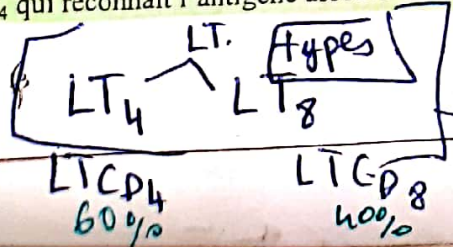 4 qui reconnaît l'antigène
LT. types
LT4 LT8
LTCD4 LTCD8
60% 40%